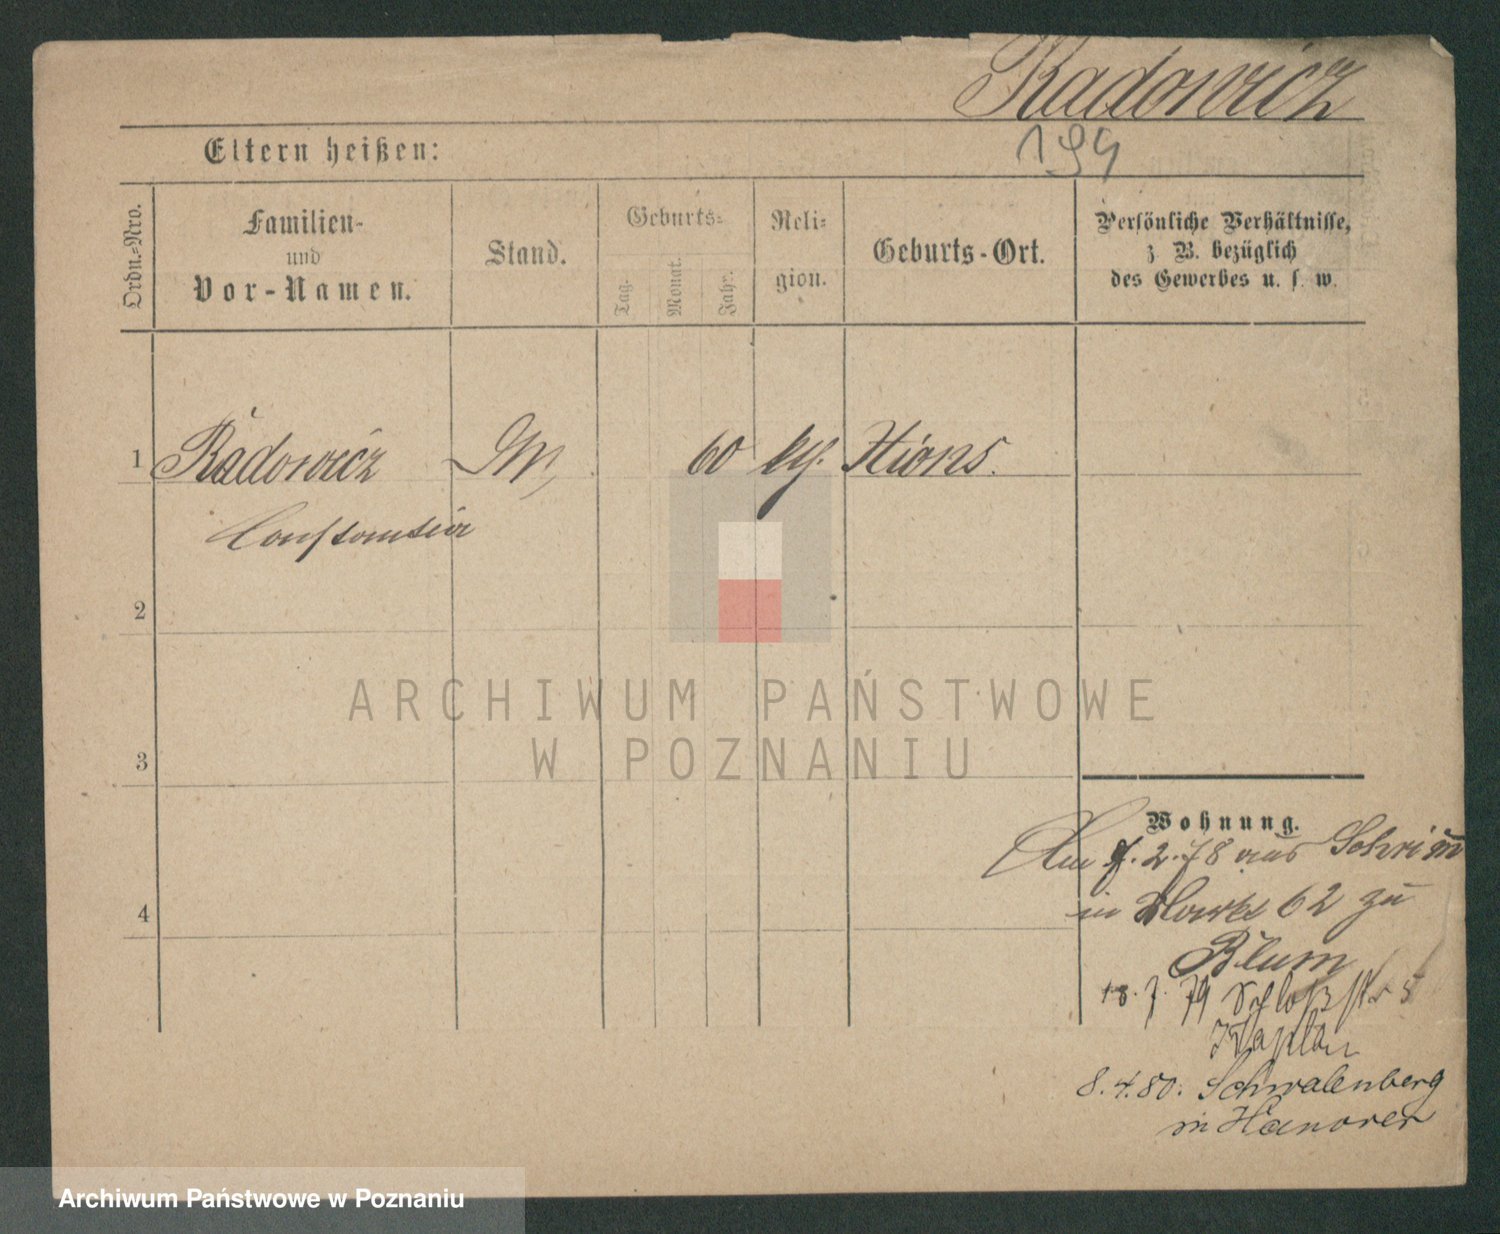 Radowicz
194
Eltern heißen:
Ordn.-Nro.
Familien-
und
Vor-Namen.
Stand.
Geburts-
Tag.
Monat.
Jahr.
Reli-
gion.
Geburts-Ort.
Persönliche Verhältnisse,
z. B. bezüglich
des Gewerbes u. s. w.
1 Radowicz 60 Xions.
Constantia
2
3
4
Wohnung.
2.78 aus Schrimm
in 62 zu
Blum
18. 7. 79 Schloßstr 5
Kaplan
8.4.80. Schwalenberg
in Hanover
ARCHIWUM PAŃSTWOWE
W POZNANIU
Archiwum Państwowe w Poznaniu